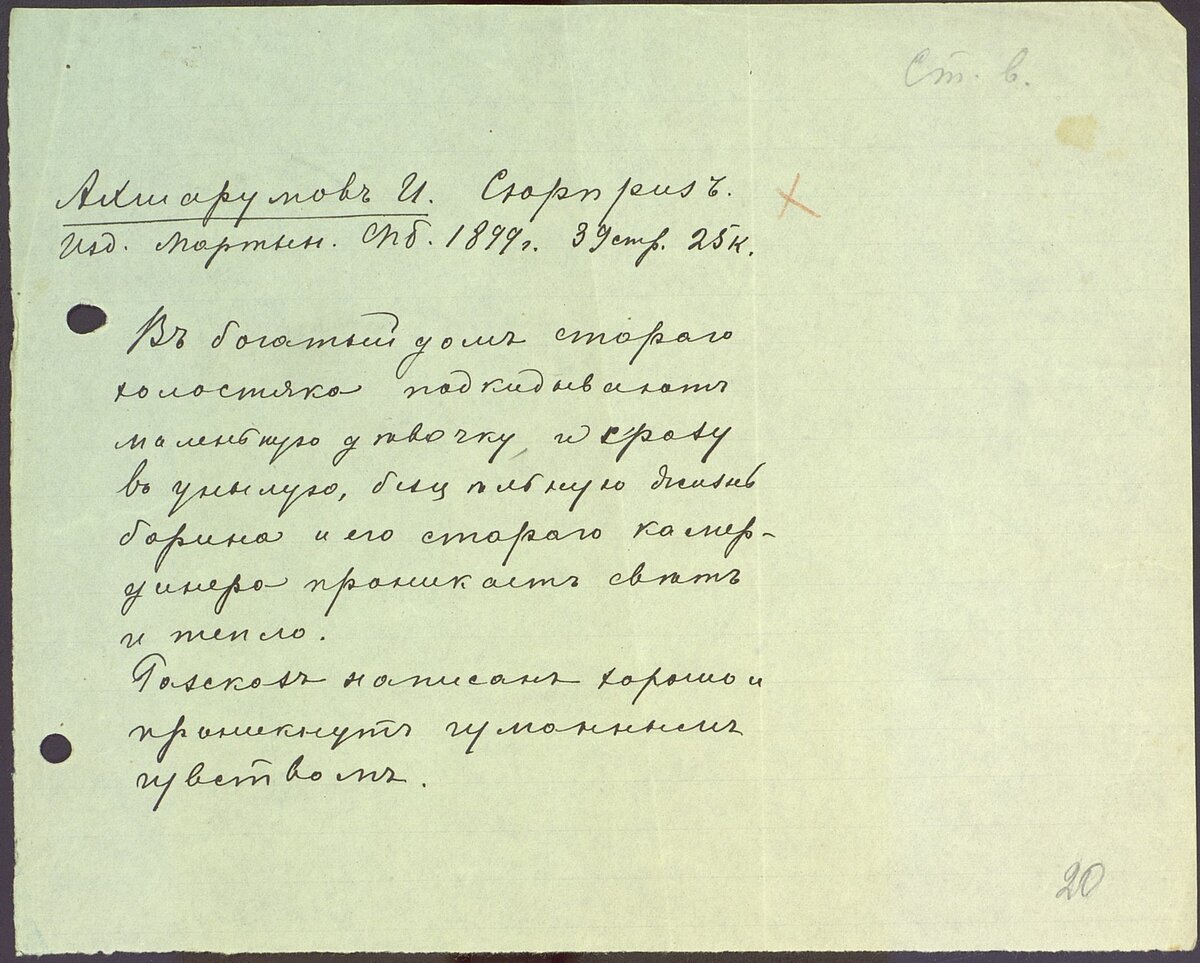 Ст. в.
Ахшарумовъ И. Сюрпризъ.
Изд. Мартын. Спб. 1899г. 39 стр. 25к.
Въ богатый домъ стараго
холостяка подкидываютъ
маленькую дѣвочку и сразу
въ унылую, безцѣльную жизнь
барина и его стараго камер-
динера проникаетъ свѣтъ
и тепло.
Разсказъ написанъ хорошо и
проникнутъ гуманнымъ
чувствомъ.
20